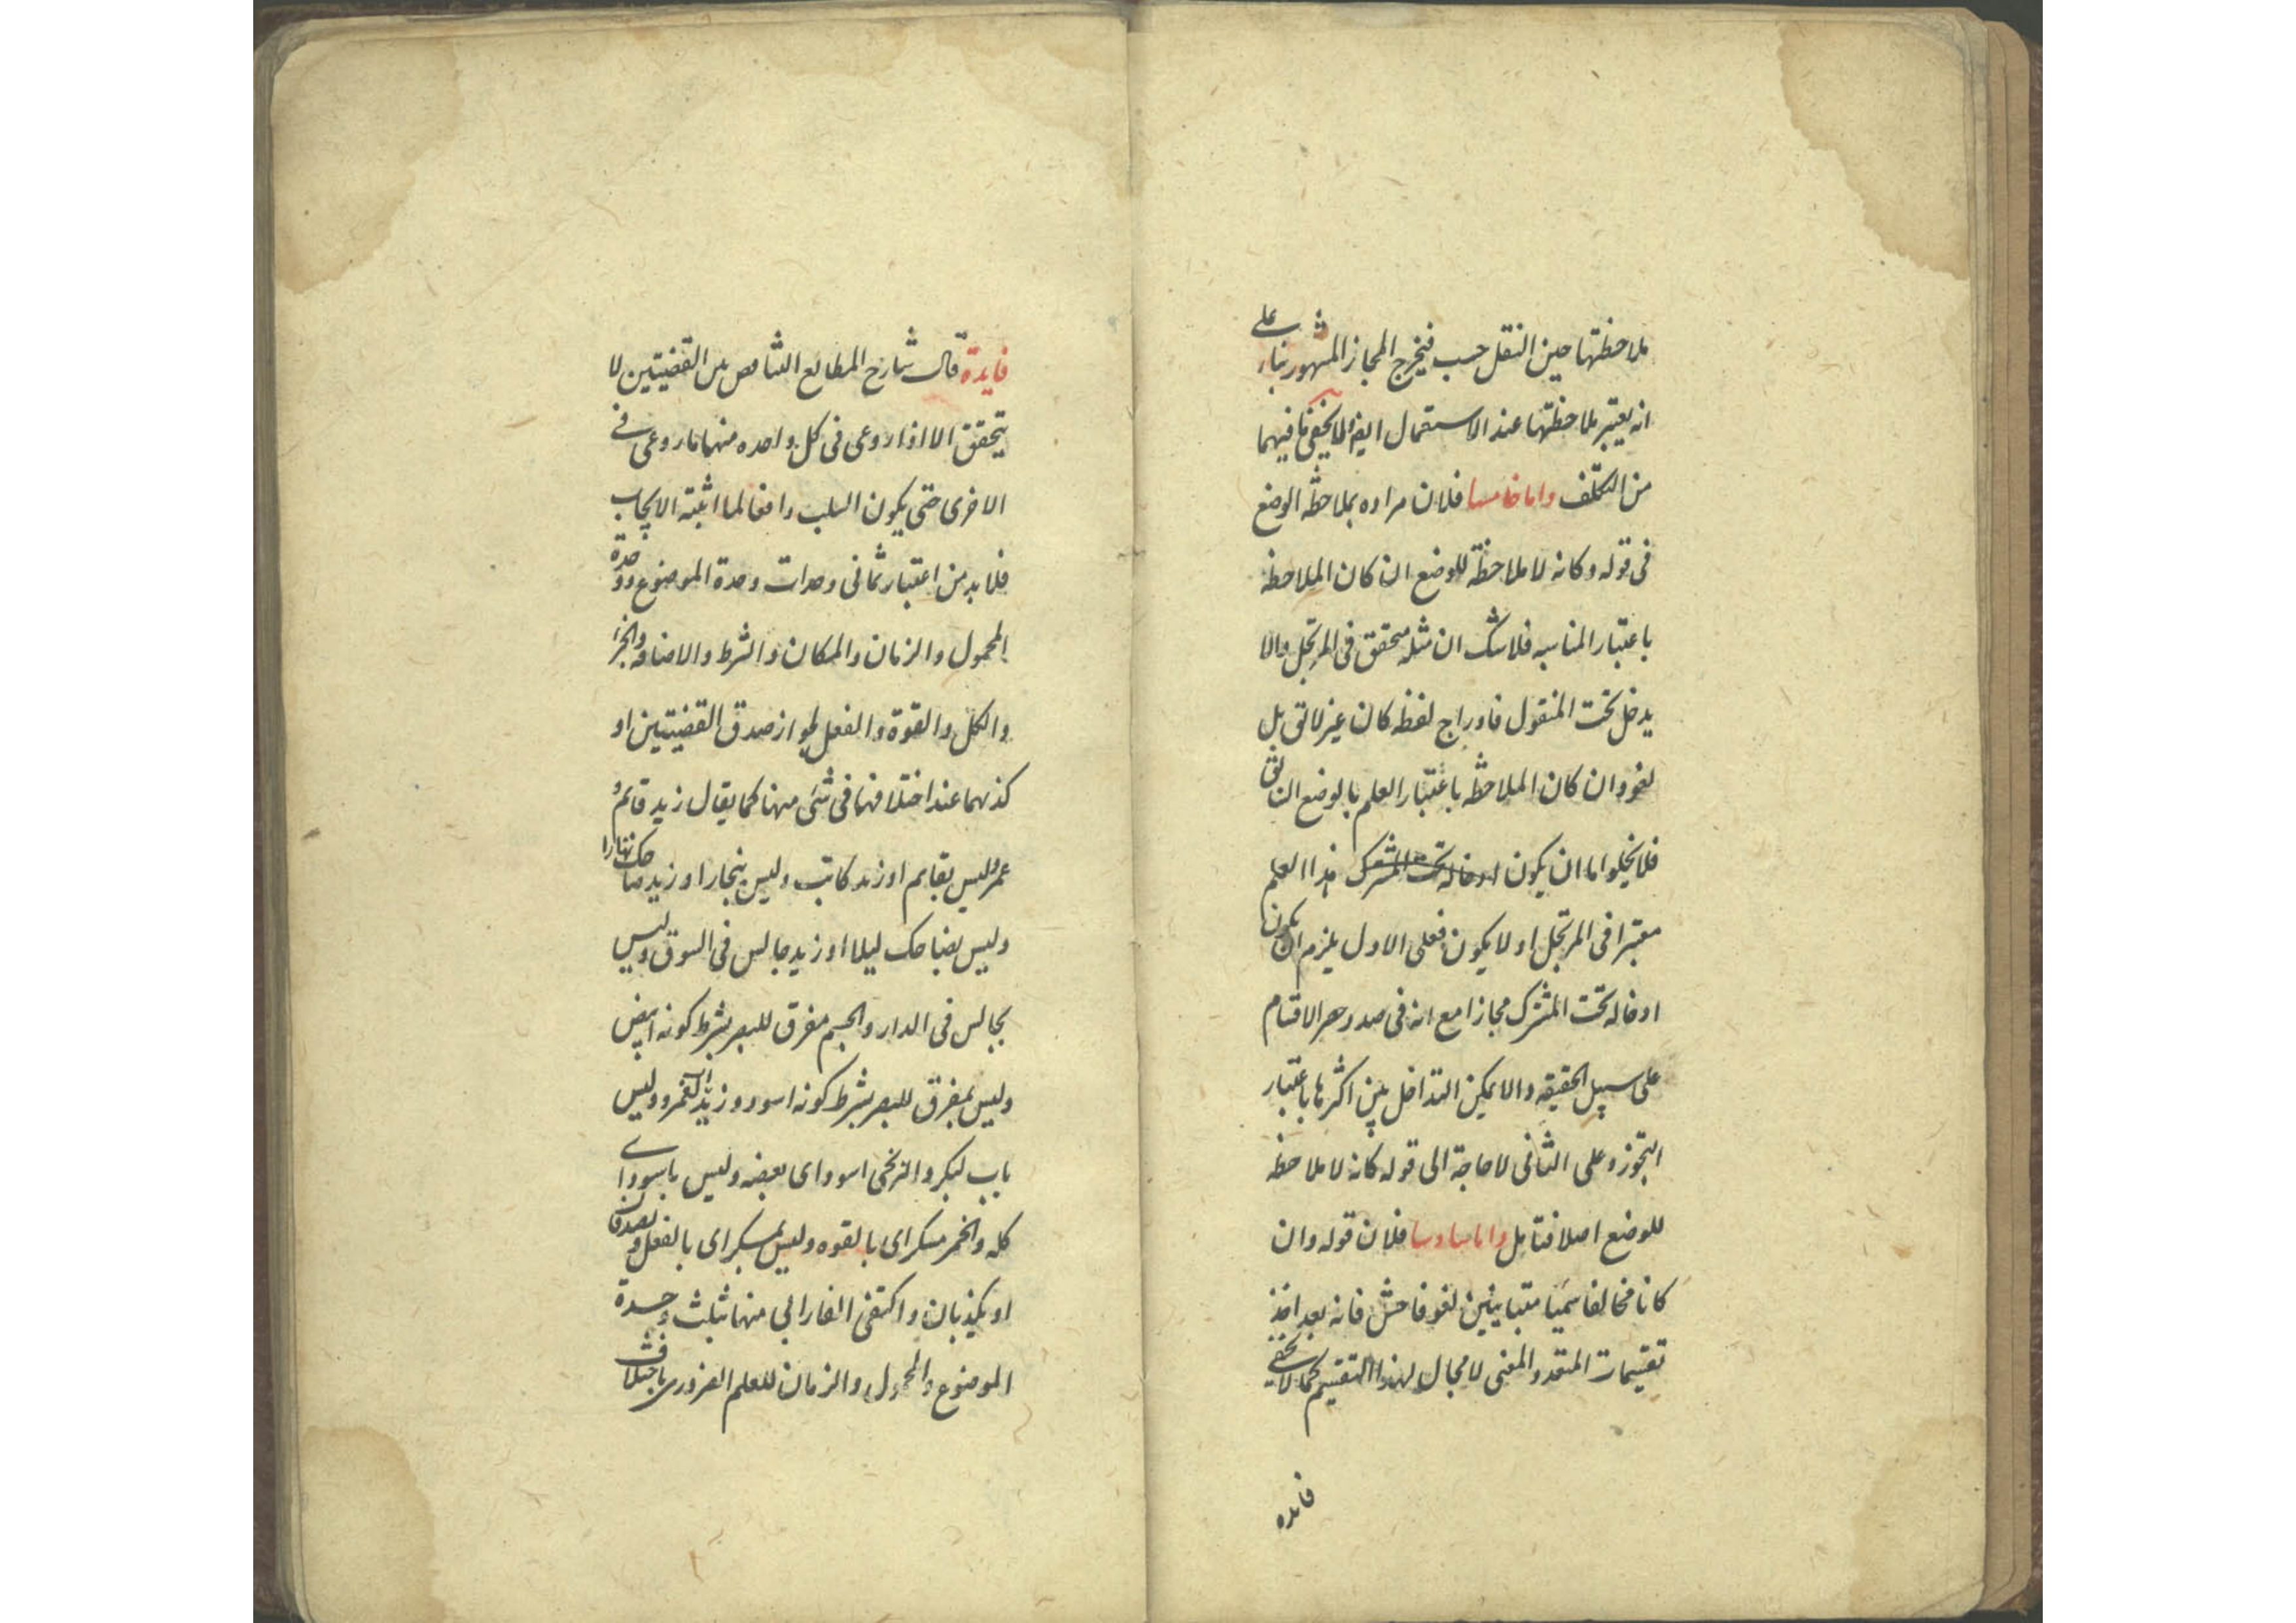 ملاحظتها حين النقل حسب فيخرج المجاز المشهور بناء على
انه يعتبر ملاحظتها عند الاستعمال ايضا ولا يخفى ما فيهما
من التكلف واما خامسا فلان مراده بملاحظة الوضع
فى قوله وكانه لا ملاحظة للوضع ان كان الملاحظة
باعتبار المناسبه فلا شك ان مثله متحقق فى المرتجل والا
يدخل تحت المنقول فادراج لفظه كان غير لائق بل
لغو وان كان الملاحظه باعتبار العلم بالوضع السابق
فلا يخلوا اما ان يكون هذا العلم
معتبرا فى المرتجل او لا يكون فعلى الاول يلزم ان يكون
ادخاله تحت المشترك مجازا مع انه فى صدد حصر الاقسام
على سبيل الحقيقه والا يمكن التداخل بين اكثرها باعتبار
التجوز وعلى الثانى لا حاجة الى قوله كانه لا ملاحظه
للوضع اصلا فتامل واما سادسا فلان قوله وان
كانا مخالفا سميا متباينين لغو فاحش فانه بعد اخذ
تقسيمات المتعدد المعنى لا مجال لهذا التقسيم كما لا يخفى
فايده
فايدة قال شارح المطالع التناقض بين القضيتين لا
يتحقق الا اذا روعى فى كل واحده منهما ما روعى فى
الاخرى حتى يكون السلب رافعا لما اثبته الايجاب
فلا بد من اعتبار ثمانى وحدات وحدة الموضوع ووحدة
المحمول والزمان والمكان والشرط والاضافه والجزء
والكل والقوة والفعل لجواز صدق القضيتين او
كذبهما عند اختلافهما فى شئ منها كما يقال زيد قائم و
عمرو ليس بقايم او زيد كاتب وليس بنجار او زيد ضاحك نهارا
وليس بضاحك ليلا او زيد جالس فى السوق وليس
بجالس فى الدار والجسم مفرق للبصر بشرط كونه ابيض
وليس بمفرق للبصر بشرط كونه اسود وزيد اب لعمرو وليس
باب لبكر والزنجى اسود اى بعضه وليس باسود اى
كله والخمر مسكر اى بالقوه وليس بمسكر اى بالفعل ويصدقان
او يكذبان واكتفى الفارابى منها بثلث وحدة
الموضوع والمحمول والزمان للعلم الضرورى باختلاف